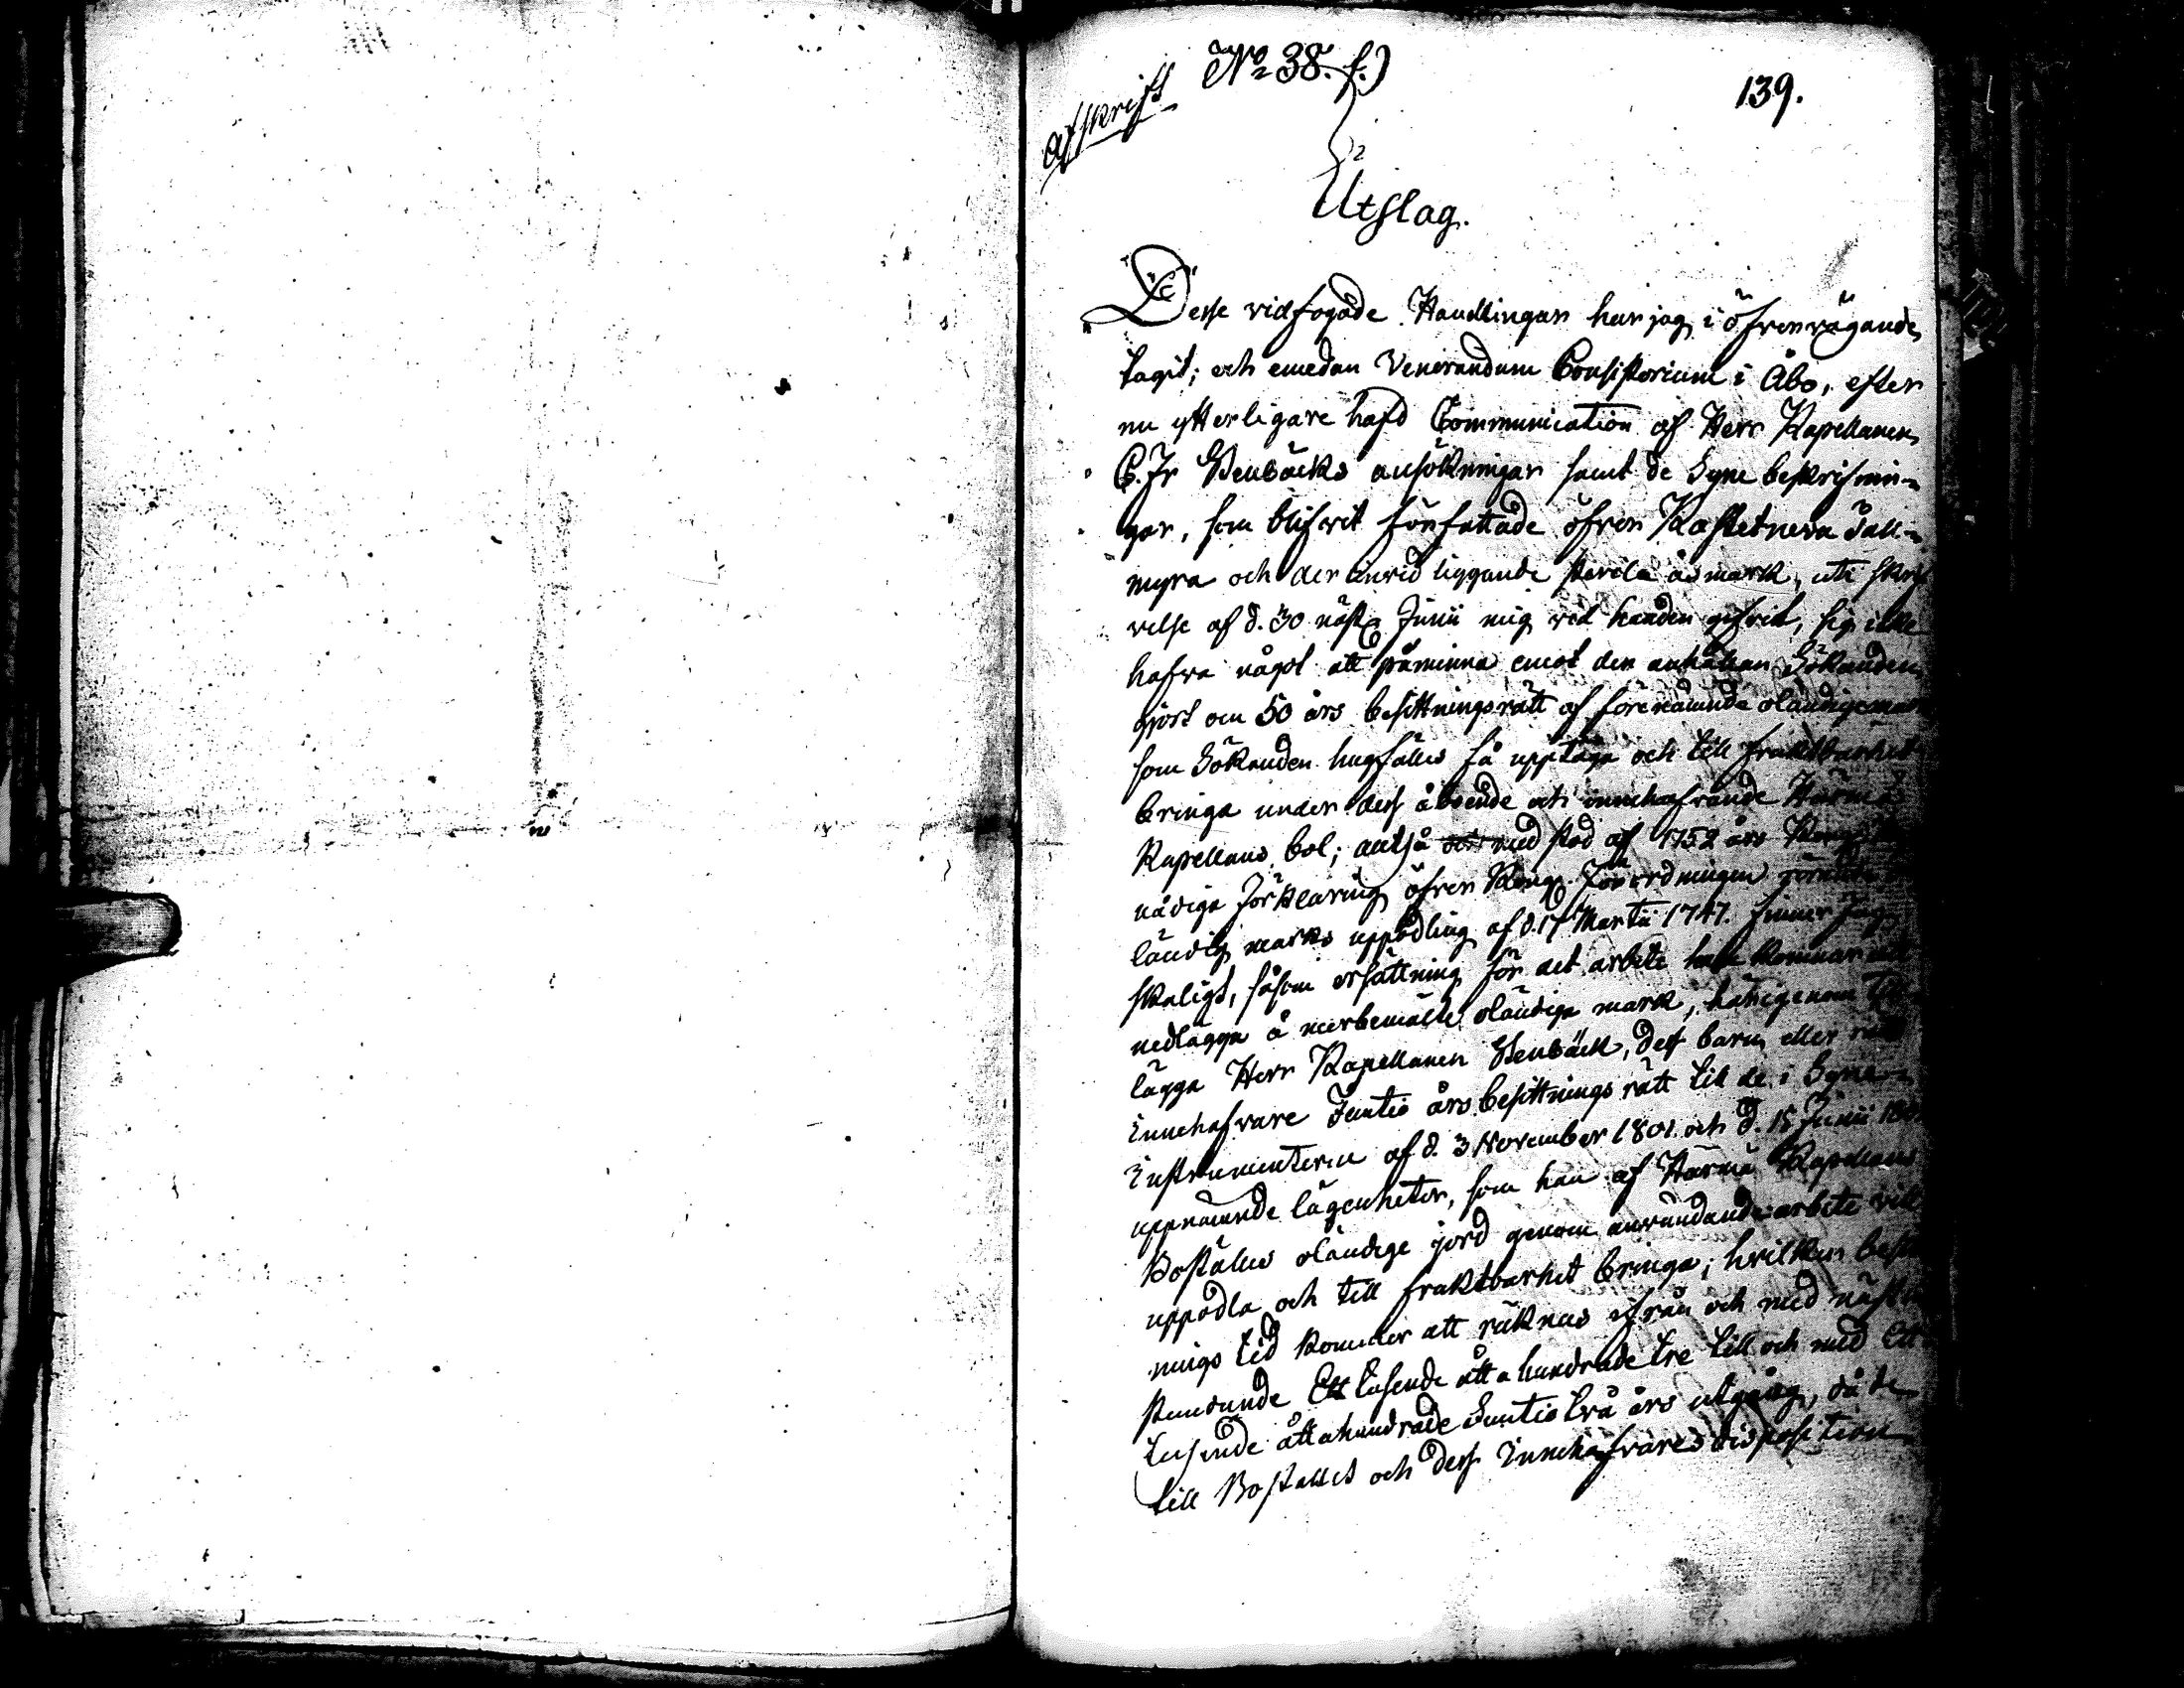 No 38. f.)
139.
afskrift
Utslag.
Desse vidfogade Handlingar har jag i öfvervägande
tagit; och emedan Venerandum Consistorium i Åbo, efter
nu ytterligare hafd Communication af Herr Kapellanen
C. Fr Stenbäcks ansökningar samt de Syne beskrifnin-
gar, som blifvit författade öfver
myra och der invid liggande sterila åsmark, uti skrif
velse af d. 30 nästl. Junii mig vid handen gifvit, sig icke
hafva något att påminna emot den anhållan Sökanden
gjort om 50 års besittningsrätt af förenämnde oländige mark
som Sökanden hugfälles få upptaga och till fruktbarhet
bringa under dess åboende och innehafvande Härmä
Kapellans bol; altså med stöd af 1752 års Kongl.
nådiga Förklaring öfver Kongl. Förordningen rörande
ländig marks uppodling af d. 17 Martii 1747. finner Jag
skäligt, såsom ersättning för det arbete han kommer att
nedlägga å merbemälte oländige mark, härigenom till
lägga Herr Kapellanen Stenbäck, dess barn eller rätt
Innehafvare Femtio års besittnings rätt till de i Syne-
Instrumenterne af d. 3 November 1801. och d. 15 Junii 180
uppnämnde lägenheter, som han af Härmä Kapellans
Boställes oländige jord genom användande arbete vill
uppodla och till fruktbarhet bringa; hvilken besitt
nings tid kommer att räknas ifrån och med näst in
stundande Ett tusende åtta hundrade tre till och med Ett
tusende åttahundrade femtio två års utgång, då de
till Bostället och dess Innehafvares disposition